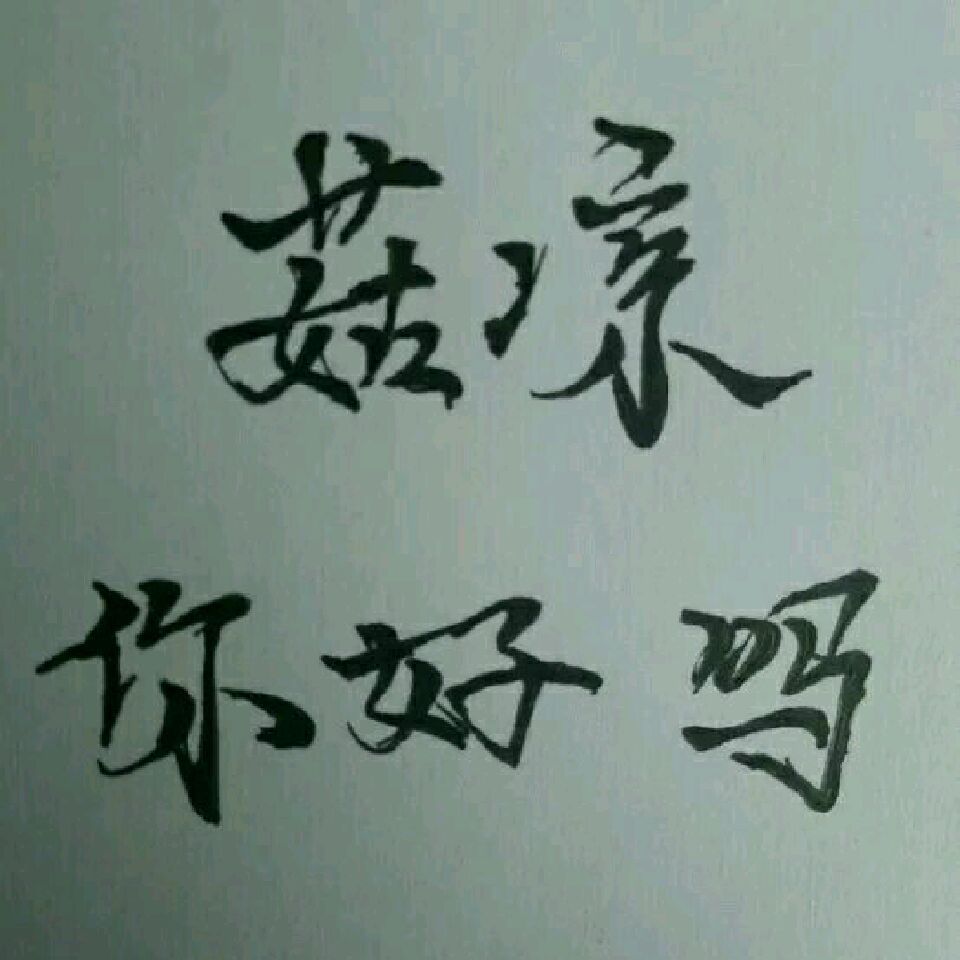 菇凉
你好吗